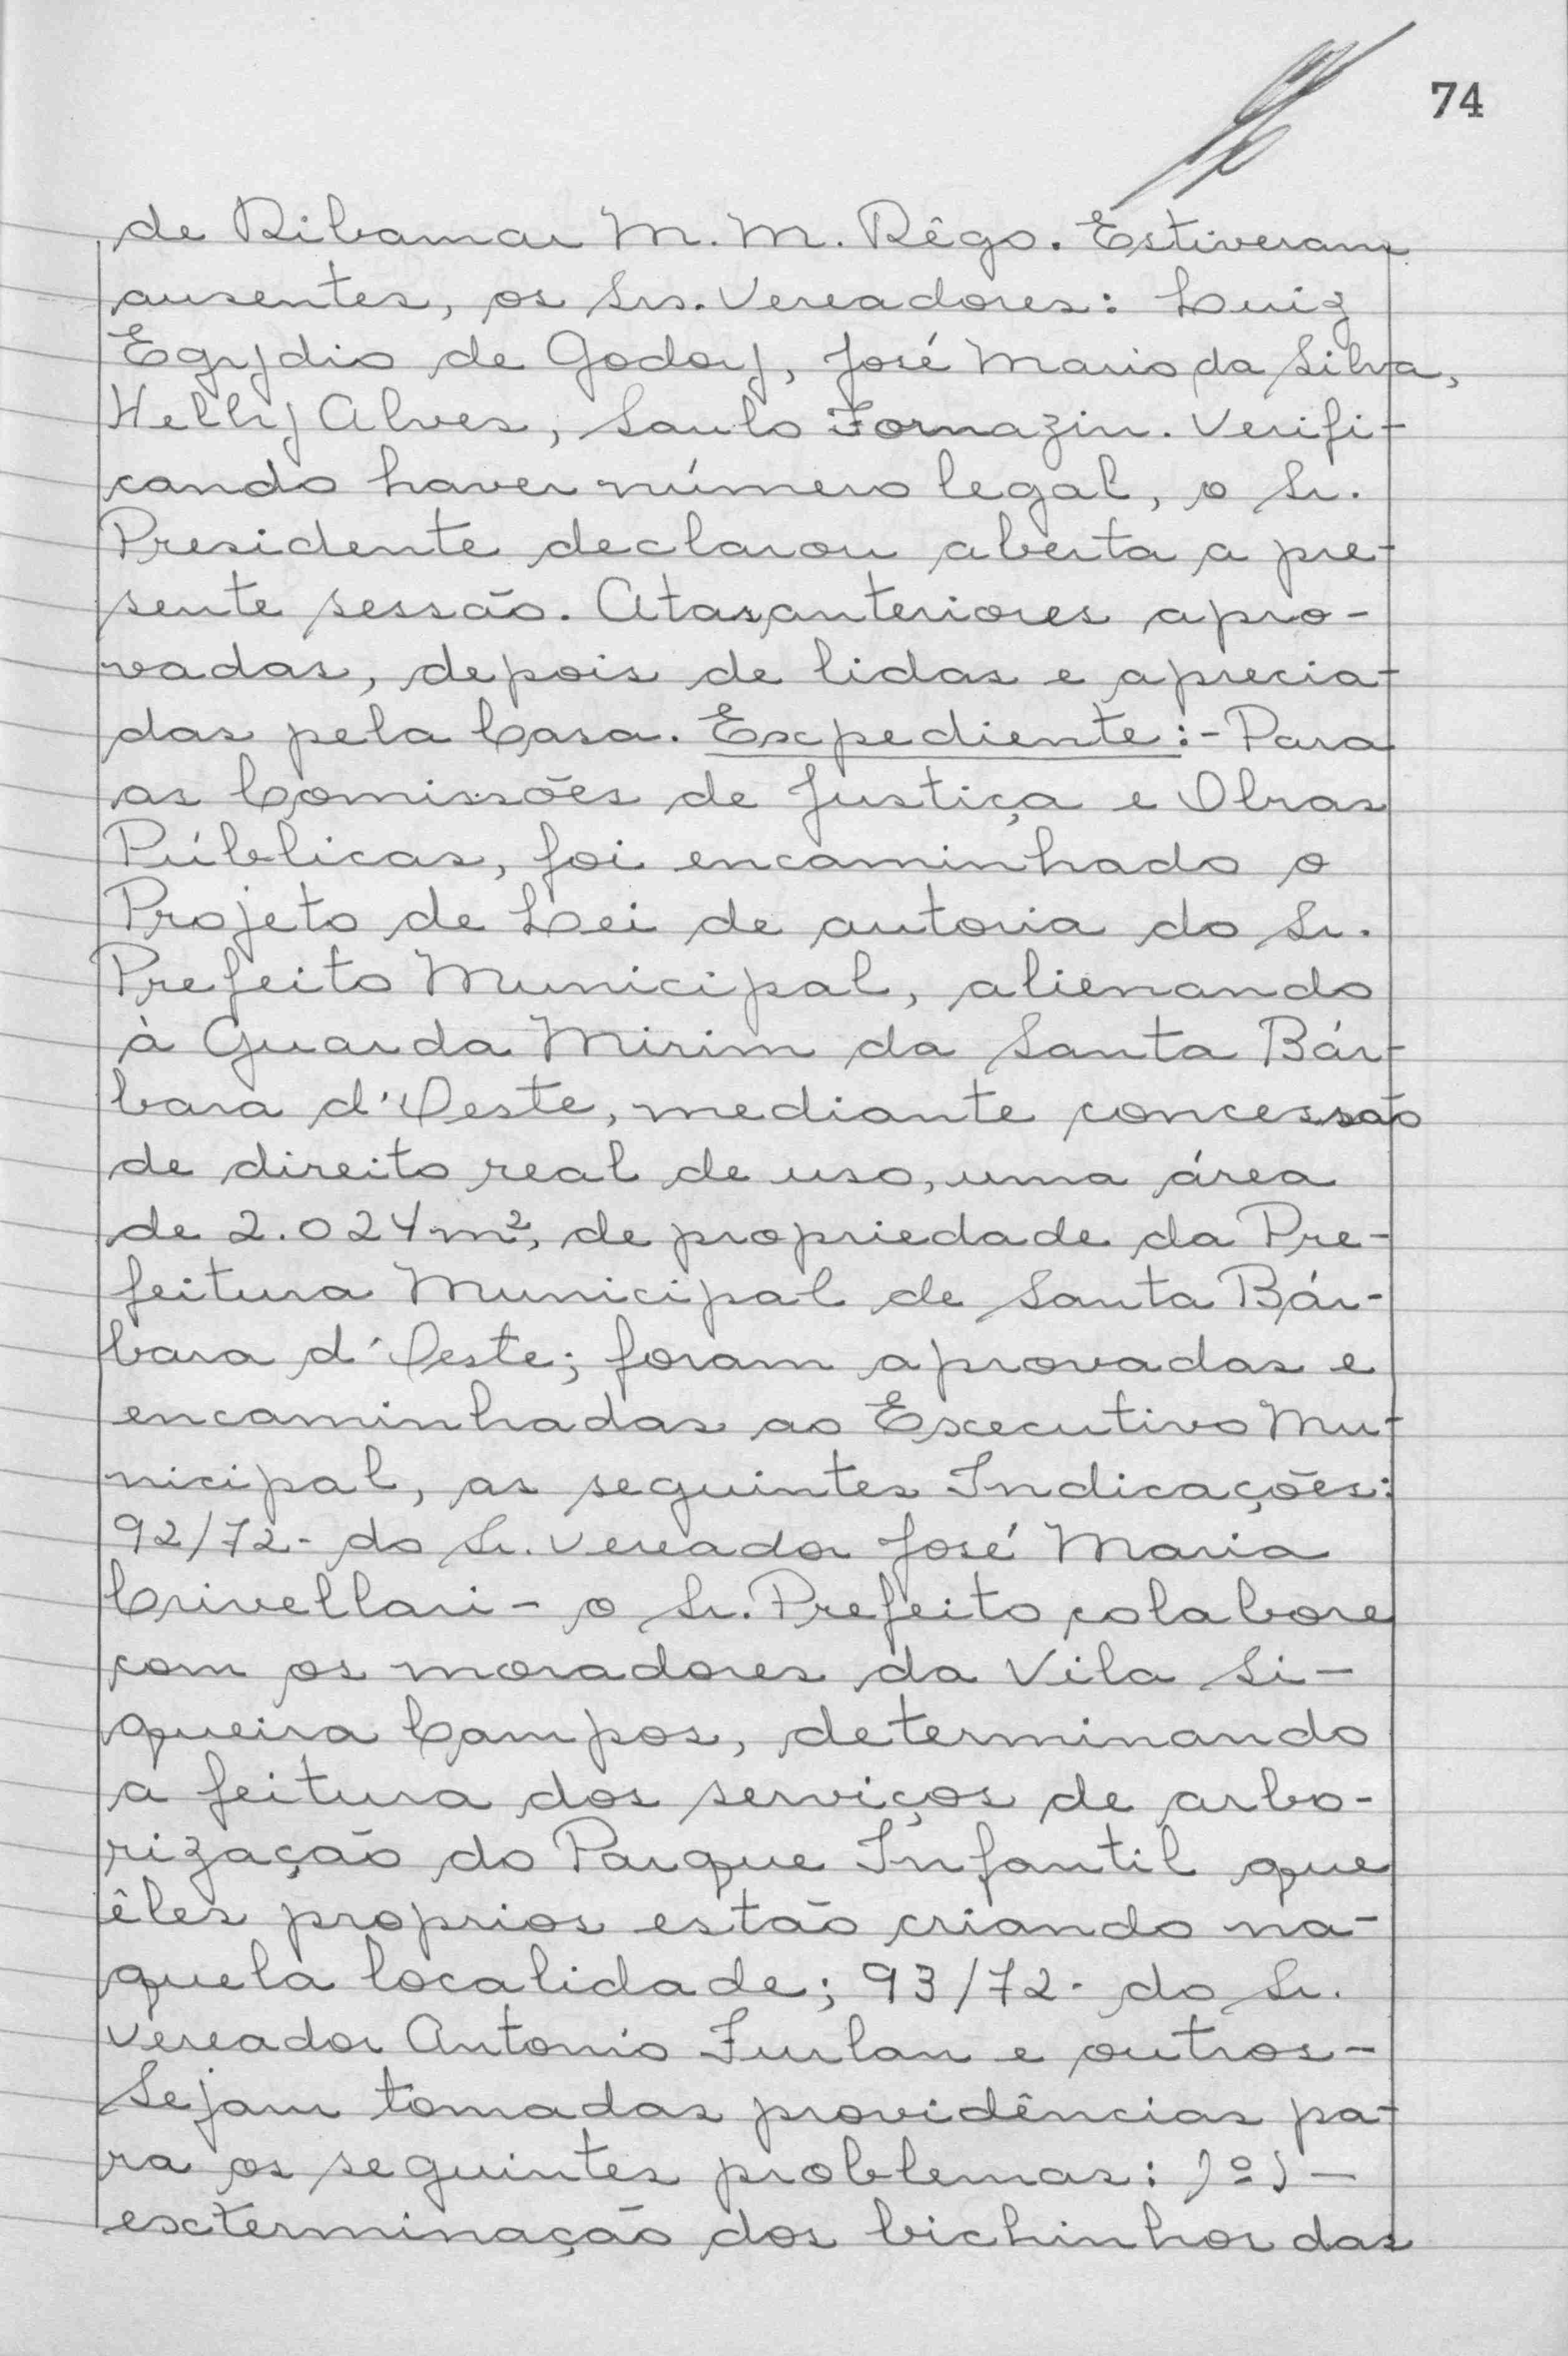 74
de Ribamar M. M. Rêgo. Estiveram
ausentes, os Srs. Vereadores: Luiz
Egydio de Godoy, José Maria da Silva,
Helly Alves, Saulo Fornazin. Verifi-
cando haver número legal, o Sr.
Presidente declarou aberta a pre-
sente sessão. Atas anteriores apro-
vadas, depois de lidas e aprecia-
das pela Casa. Expediente:- Para
as Comissões de Justiça e Obras
Públicas, foi encaminhado o
Projeto de Lei de autoria do Sr.
Prefeito Municipal, alienando
à Guarda Mirim da Santa Bár-
bara d'Oeste, mediante concessão
de direito real de uso, uma área
de 2.024m², de propriedade da Pre-
feitura Municipal de Santa Bár-
bara d'Oeste; foram aprovadas e
encaminhadas ao Executivo Mu-
nicipal, as seguintes Indicações:
92/72- do Sr. Vereador José Maria
Crivellari - o Sr. Prefeito colabore
com os moradores da Vila Si-
queira Campos, determinando
a feitura dos serviços de arbo-
rização do Parque Infantil que
êles proprios estão criando na-
quela localidade; 93/72- do Sr.
Vereador Antonio Furlan e outros-
Sejam tomadas providências pa-
ra os seguintes problemas: 1º) -
exterminação dos bichinhos das